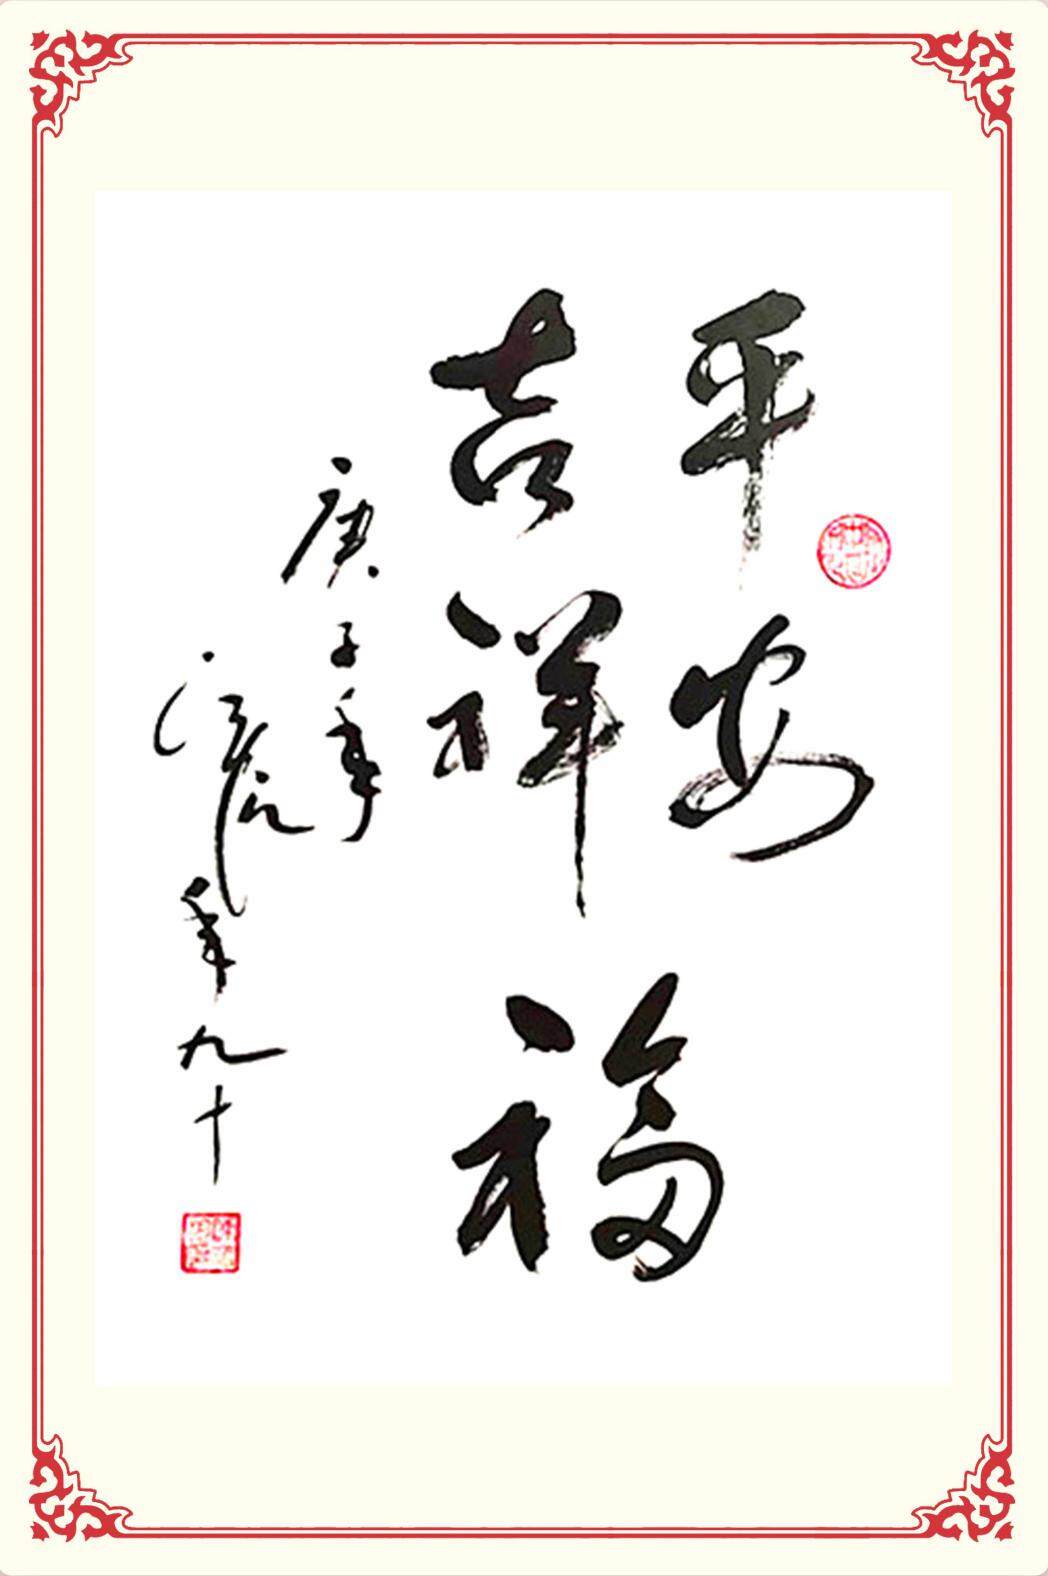 平安
吉祥
福
庚子年
年九十